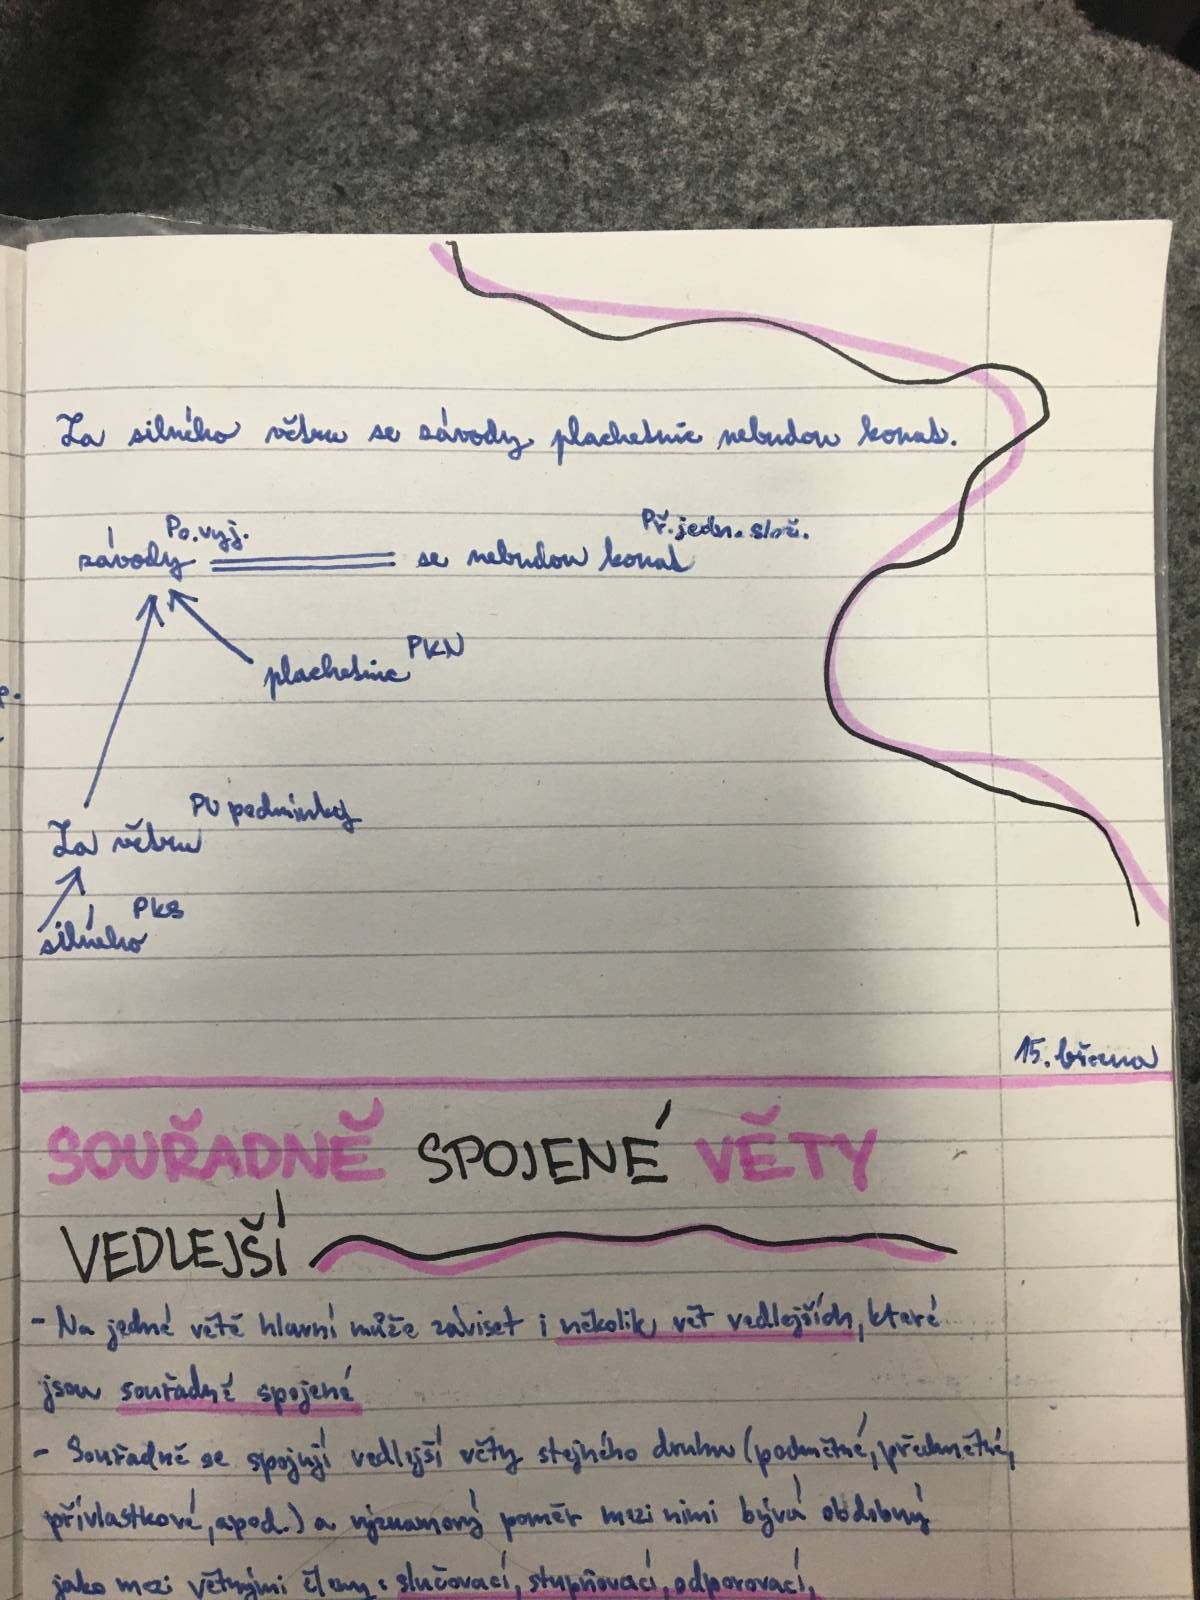 Za silného větru se závody plachetnic nebudou konat.
Po. vyj.
Př. jedn. slož.
závody se nebudou konat
plachetnic PKN
PU podmínky
Za větru
PKS
silného
15. března
SOUŘADNĚ SPOJENÉ VĚTY
VEDLEJŠÍ
- Na jedné větě hlavní může záviset i několik vět vedlejších, které
jsou souřadně spojené
- Souřadně se spojují vedlejší věty stejného druhu (podmětné, předmětné,
přívlastkové, apod.) a významový poměr mezi nimi bývá obdobný
jako mezi větnými členy: slučovací, stupňovací, odporovací,